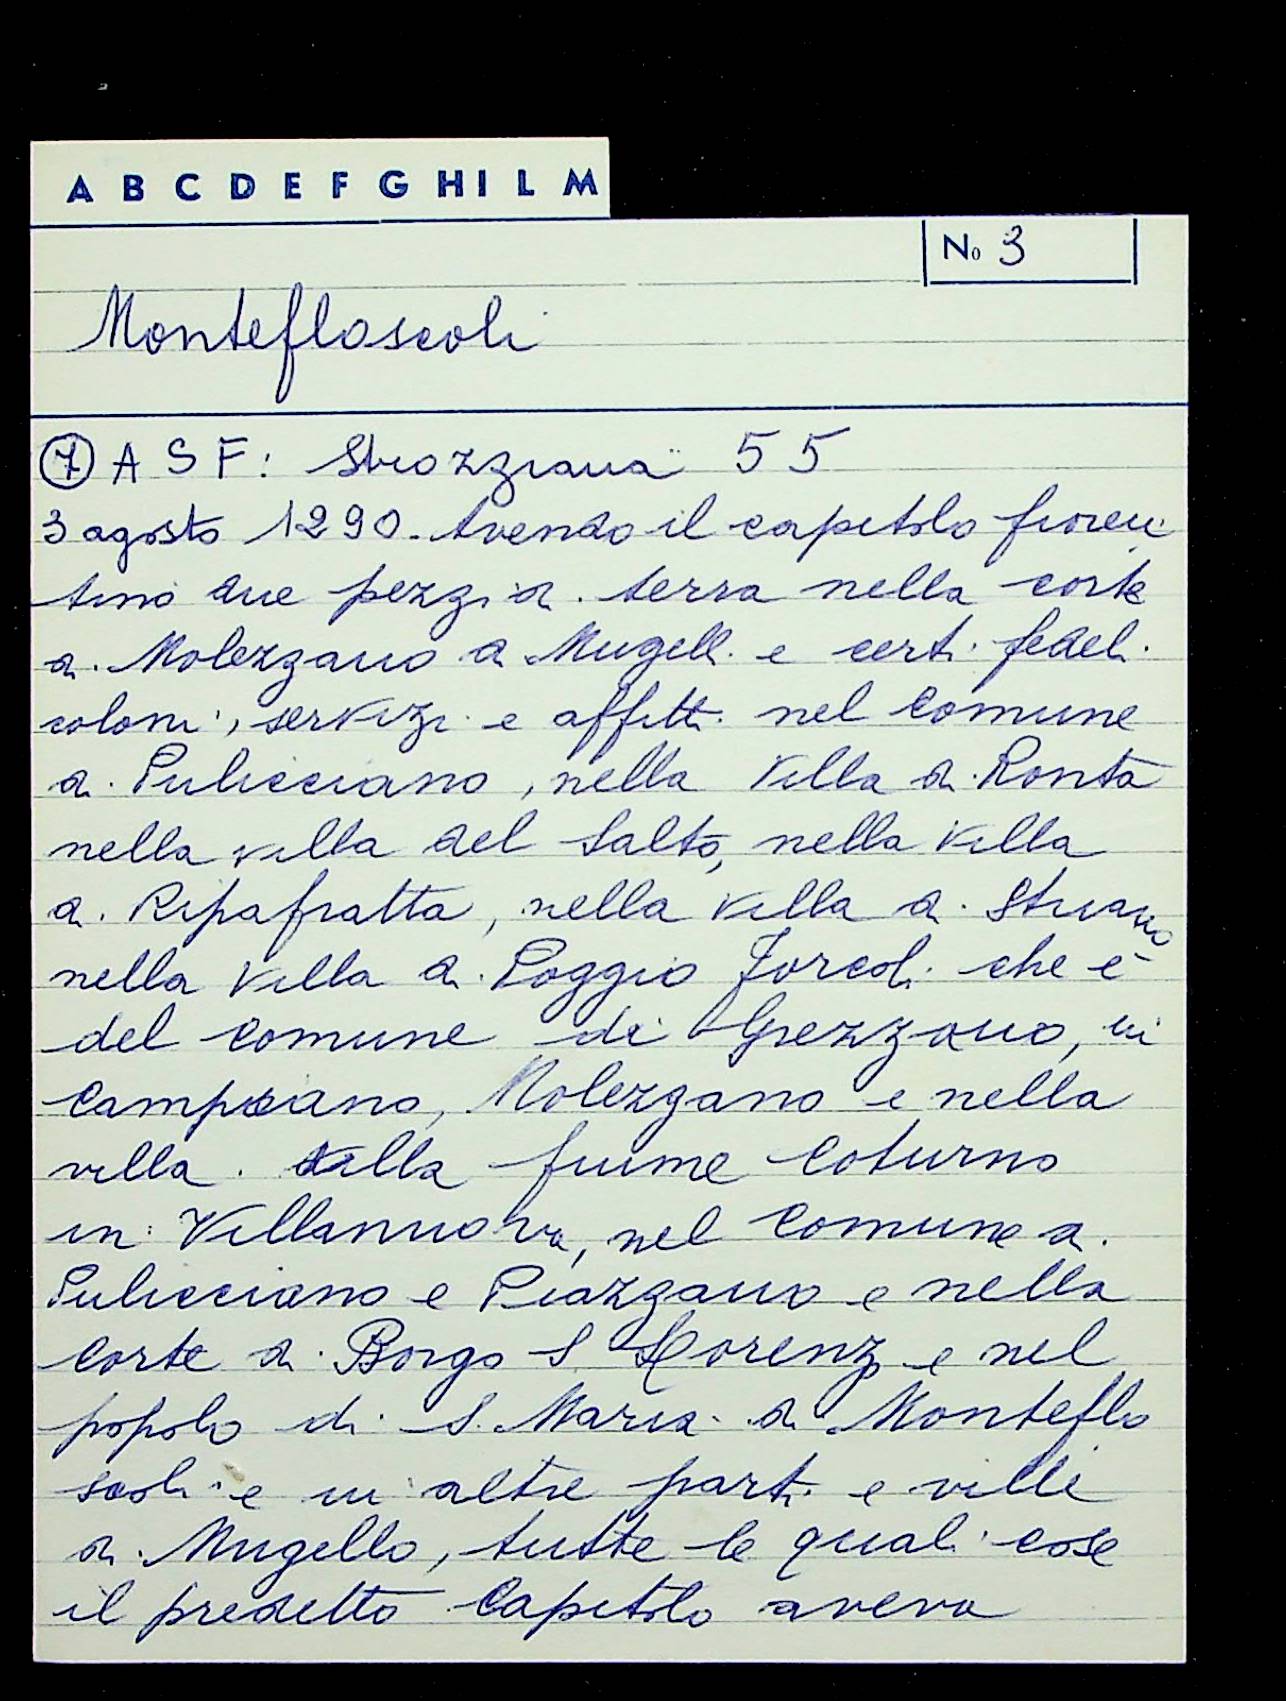 A B C D E F G H I L M
No 3
Montefloscoli
(7) A S F: Strozziana 55
3 agosto 1290. Avendo il capitolo fioren
tino due pezzi di terra nella corte
di Molezzano di Mugell. e certi fedeli
coloni, servizi e affitti nel Comune
di Pulicciano, nella Villa di Ronta
nella villa del Salto, nella Villa
di Ripafratta, nella Villa di Striano
nella Villa di Poggio Forcoli che è
del Comune di Grezzano, in
Campiano, Molezzano e nella
villa fiume Coturno
in Villanuova, nel Comune di
Pulicciano e Piazzano e nella
Corte di Borgo S Lorenzo e nel
popolo di S. Maria a Monteflo
scoli e in altre parti e ville
di Mugello, tutte le quali cose
il predetto Capitolo aveva